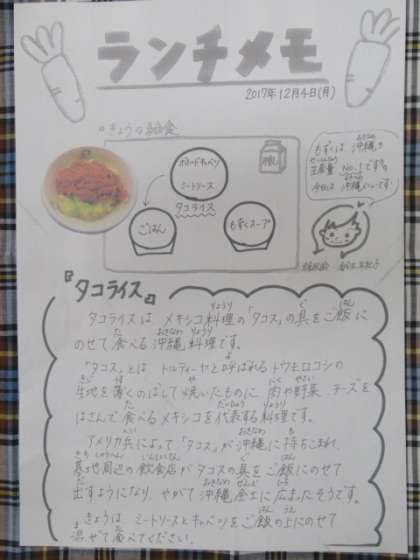 ランチメモ
2017年12月4日(月)
◦きょうの給食
ボイルドキャベツ
ミートソース
タコライス
ごはん
もずくスープ
牛乳
もずくは 沖縄が
生産量 No.1です。
今日は 沖縄メニューです!
『タコライス』
タコライスは メキシコ料理の「タコス」の具をご飯に
のせて食べる沖縄料理です。
「タコス」とは トルティーヤと呼ばれるトウモロコシの
生地を薄くのばして焼いたものに 肉や野菜、チーズを
はさんで食べるメキシコを代表する料理です。
アメリカ兵によって「タコス」が沖縄に持ちこまれ、
基地周辺の飲食店がタコスの具をご飯にのせて
出すようになり、やがて沖縄全土に広まったそうです。
きょうは ミートソースとキャベツをご飯の上にのせて
混ぜて食べてください。